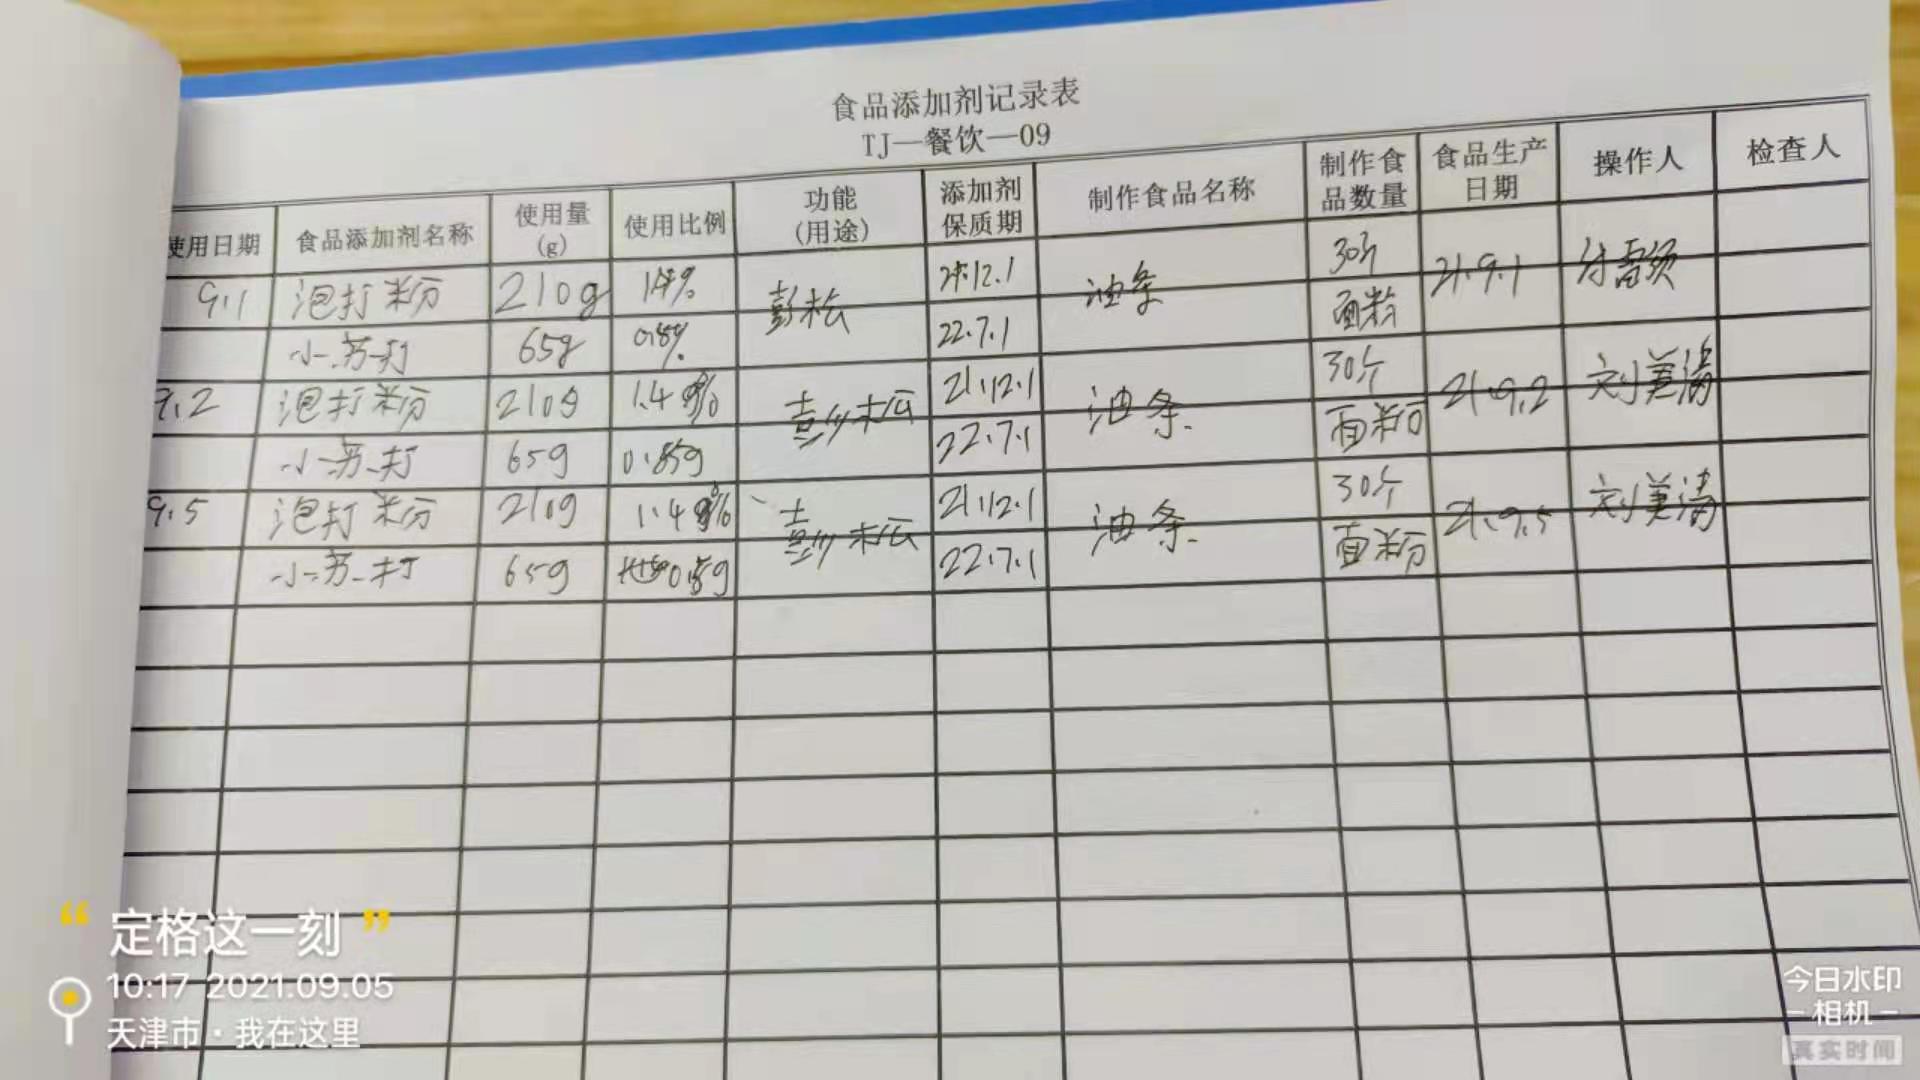 食品添加剂记录表
TJ—餐饮—09
使用日期 食品添加剂名称 使用量(g) 使用比例 功能(用途) 添加剂保质期 制作食品名称 制作食品数量 食品生产日期 操作人 检查人
9.1 泡打粉 210g 1.4% 膨松 21.12.1 油条 30个 21.9.1
小苏打 65g 22.7.1 面粉
9.2 泡打粉 210g 1.4% 21.12.1 油条 30个 21.9.2 刘美清
小苏打 65g 0.85g 22.7.1 面粉
9.5 泡打粉 210g 1.4% 21.12.1 油条 30个 21.9.5 刘美清
小苏打 65g 22.7.1 面粉
“定格这一刻”
10:17 2021.09.05
天津市·我在这里
今日水印
-相机-
真实时间